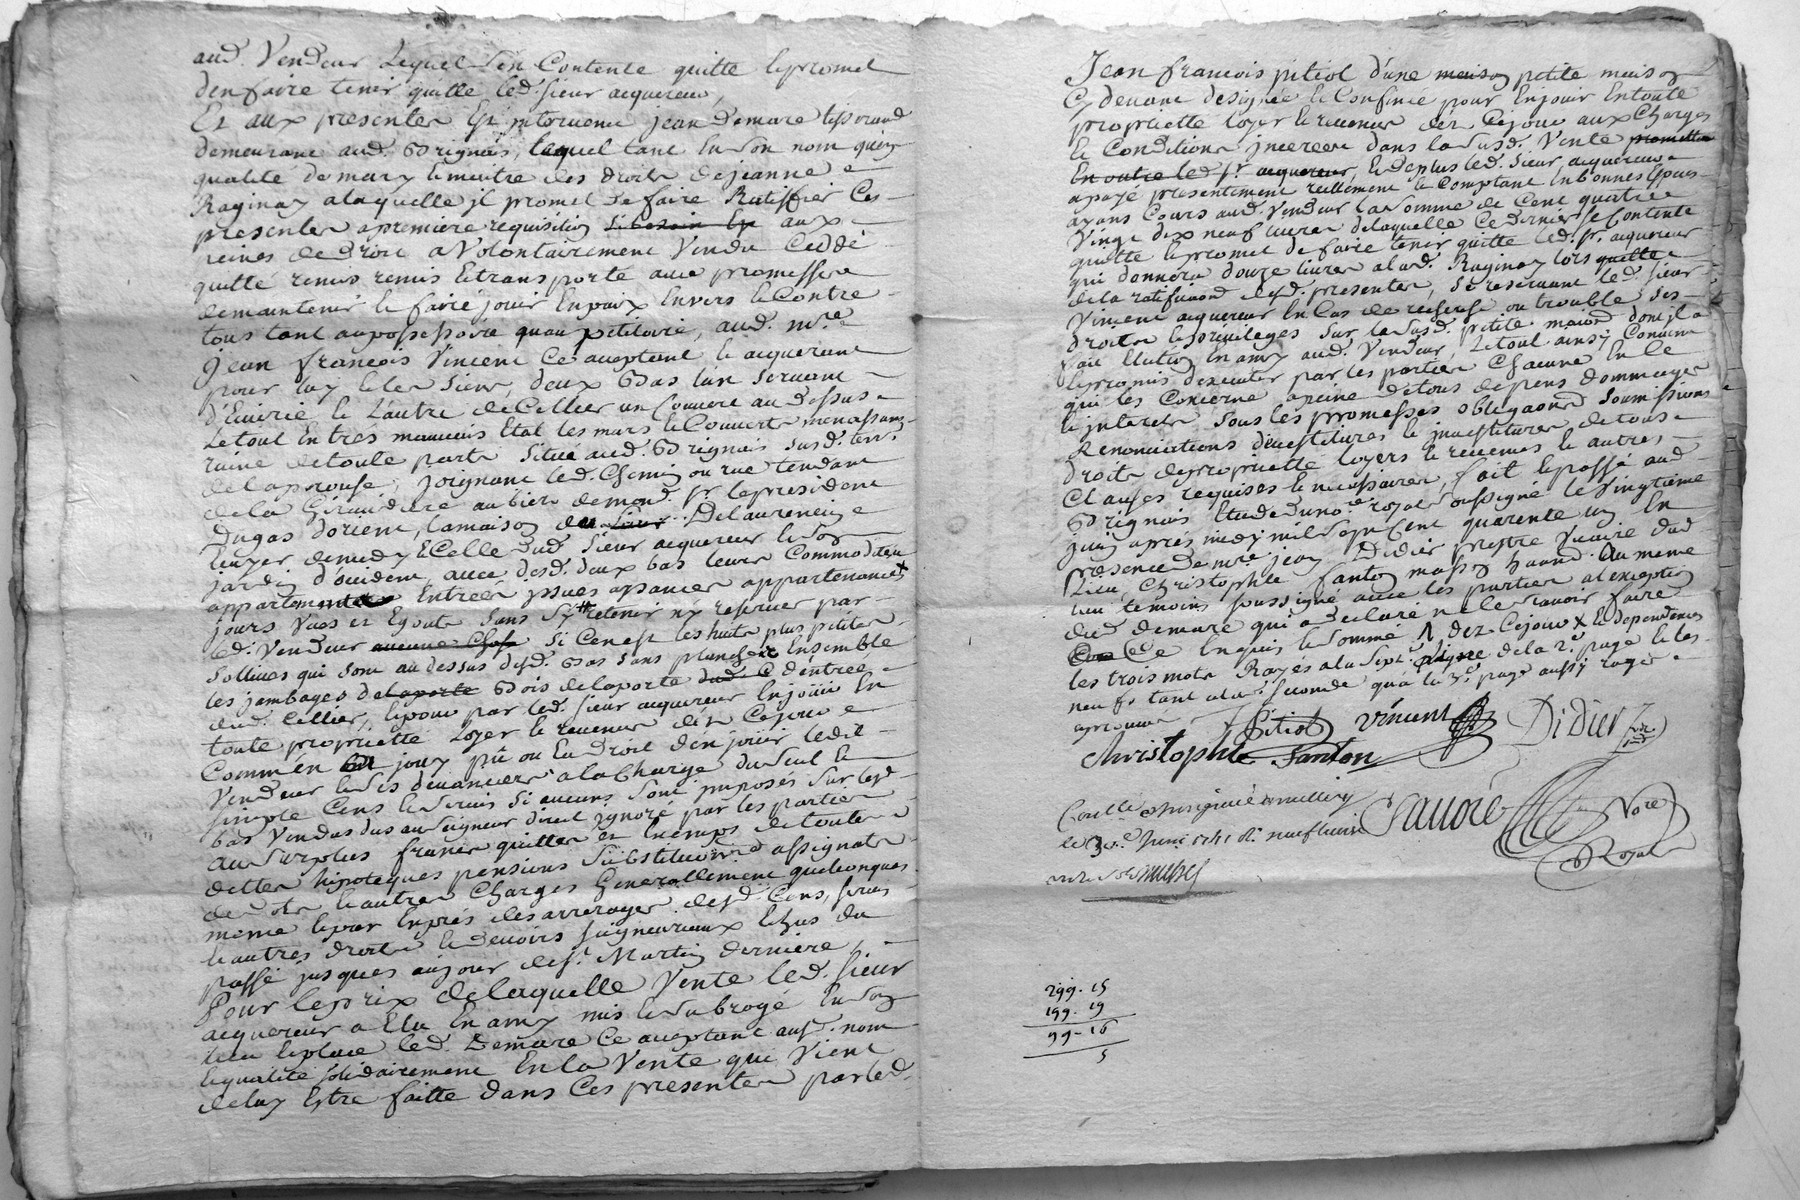 aud. Vendeur Lequel s'en Contente quitte et promet
d'en faire tenir quitte led. sieur acquereur,
Et aux presentes Est intervenu jean Demare tisserand
demeurant aud. Brignais, lequel tant En son nom qu'en
qualité de mary et maitre des droits de jeanne
Raginay a laquelle il promet de faire Ratiffier Ces
presentes a premiere requisition si besoin Est aux
peines de droit a Volontairement Vendu Ceddé
quitté remis remis Et transporté avec promesses
de maintenir et faire jouir En paix Envers et Contre
tous tant au possessoire qu'au petitoire, aud. mre
Jean francois Vincent Ce acceptant et acquerant
pour luy et les siens, deux Bas l'un servant
d'Ecurie et L'autre de Cellier un Couvert au dessus
Le tout En tres mauvais Etat les murs et Couverts menassans
ruine de toute parts situé aud. Brignais susd. terr.
de la pérouse, joignant led. Chemin ou rue tendant
de la Giraudiere au biers de mond. sr. le president
Dugas d'orient, la maison de Delaurencin
de midy Et Celle dud. sieur acquereur et son
jardin d'occident, avec desd. deux bas leurs Commodités
appartenances Entrées, issues aisances appartenances
jours Vues et Egouts sans s'y retenir ny reserver par
led. Vendeur aucune Chose si Ce n'est les huits plus petites
sollives qui sont au dessus desd. Bas sans plancher Ensemble
les jambages de la porte Bois de la porte d'entrée
dud. Cellier, et pour par led. sieur acquereur En jouir En
toute proprietté Loyer et revenus dés Cejour
Comme En a jouy pû ou Eu Droit d'en jouir led.
Vendeur et ses devanciers a la Charge du seul et
simple Cens et servis si aucuns sont imposés sur lesd.
bas Vendus dus au seigneur direct ignoré par les parties
au surplus francs quittes et Exemps de toutes
dettes hipoteques pensions substitutions assignats
de dot et autres Charges Generallement quelconques
meme et par Exprés des arrerages desd. Cens, servis
et autres droits et devoirs seigneuriaux Echus du
passé jusques au jour de St. Martin derniere,
Pour le prix de laquelle Vente led. sieur
acquereur a Elu En amy mis et subrogé En son
lieu et place led. Demare Ce acceptant aud. nom
et qualité solidairement En la Vente qui Vient
de luy Estre faitte dans Ces presentes par led.
Jean francois pitiol d'une maison petite maison
Cy devant designée et Confinée pour En jouir En toute
proprietté loyer et revenus dés Cejour aux Charges
et Conditions inserées dans la susd. Vente promettant
En outre led. sr. acquereur, Et de plus led. sieur acquereur
a payé presentement reellement et Comptant En bonnes Especes
ayans Cours aud. Vendeur la somme de Cent quatre
Vingt dix neuf livres de laquelle Ce dernier se Contente
quitte et promet de faire tener quitte led. sr. acquereur
qui donnera douze livres a lad. Raginay lors quelle
de la ratification desd. presentes, se reservant led. sieur
Vincent acquereur En Cas de recherche ou trouble ses
droits et privileges sur la susd. petite maison dont il a
fait Election En amy aud. Vendeur, Le tout ainsy Convenu
et promis d'executer par les parties Chacune En Ce
qui les Concerne a peine de tous depens dommages
et interets sous les promesses obligations soumissions
Renonciations d'investitures et investitures de tous
droits de proprietté loyers et revenus et autres
Clauses requises et necessaires, fait et passé aud.
Brignais Etude du no.e royal soussigné le vingtieme
juin apres midy mil sept Cent quarente un En
presence de mre jean Didier prestre Vicaire dud.
Lieu, Christophle fanton masson hand. au meme
lieu temoins soussigné avec les parties a l'exception
dud. demare qui a declaré ne le savoir faire
de Ce Enquis et sommé dez Cejour X et dependances
les trois mots Rayés a la Sept. ligne de la 2e. page et les
neufs tant a la seconde qu'a la 3e. page aussy rayés
approuvé
Pitiol Vincent Didier vic.
Christophle fanton
Controllé a Brignais
le 30e Juin 1741 Rt. neuf livres
Favoré No.re
Royal
299. 15
199. 19
99 - 16
5